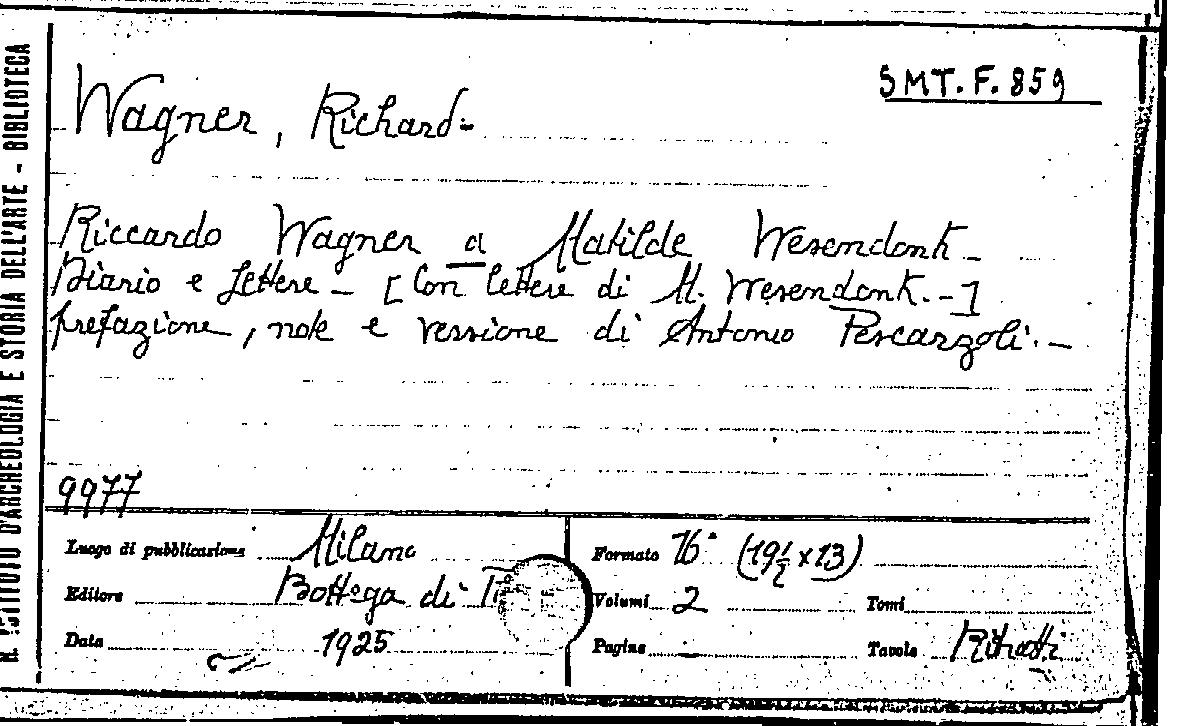 R. ISTITUTO D'ARCHEOLOGIA E STORIA DELL'ARTE - BIBLIOTECA
SMT. F. 859
Wagner, Richard-
Riccardo Wagner a Matilde Wesendonk -
Diario e lettere - [Con lettere di M. Wesendonk.-]
prefazione, note e versione di Antonio Pescarzoli. -
9977
Luogo di pubblicazione Milano
Editore Bottega di
Data 1925
Formato 16° (19½ x 13)
Volumi 2
Tomi
Pagine -
Tavole Ritratti